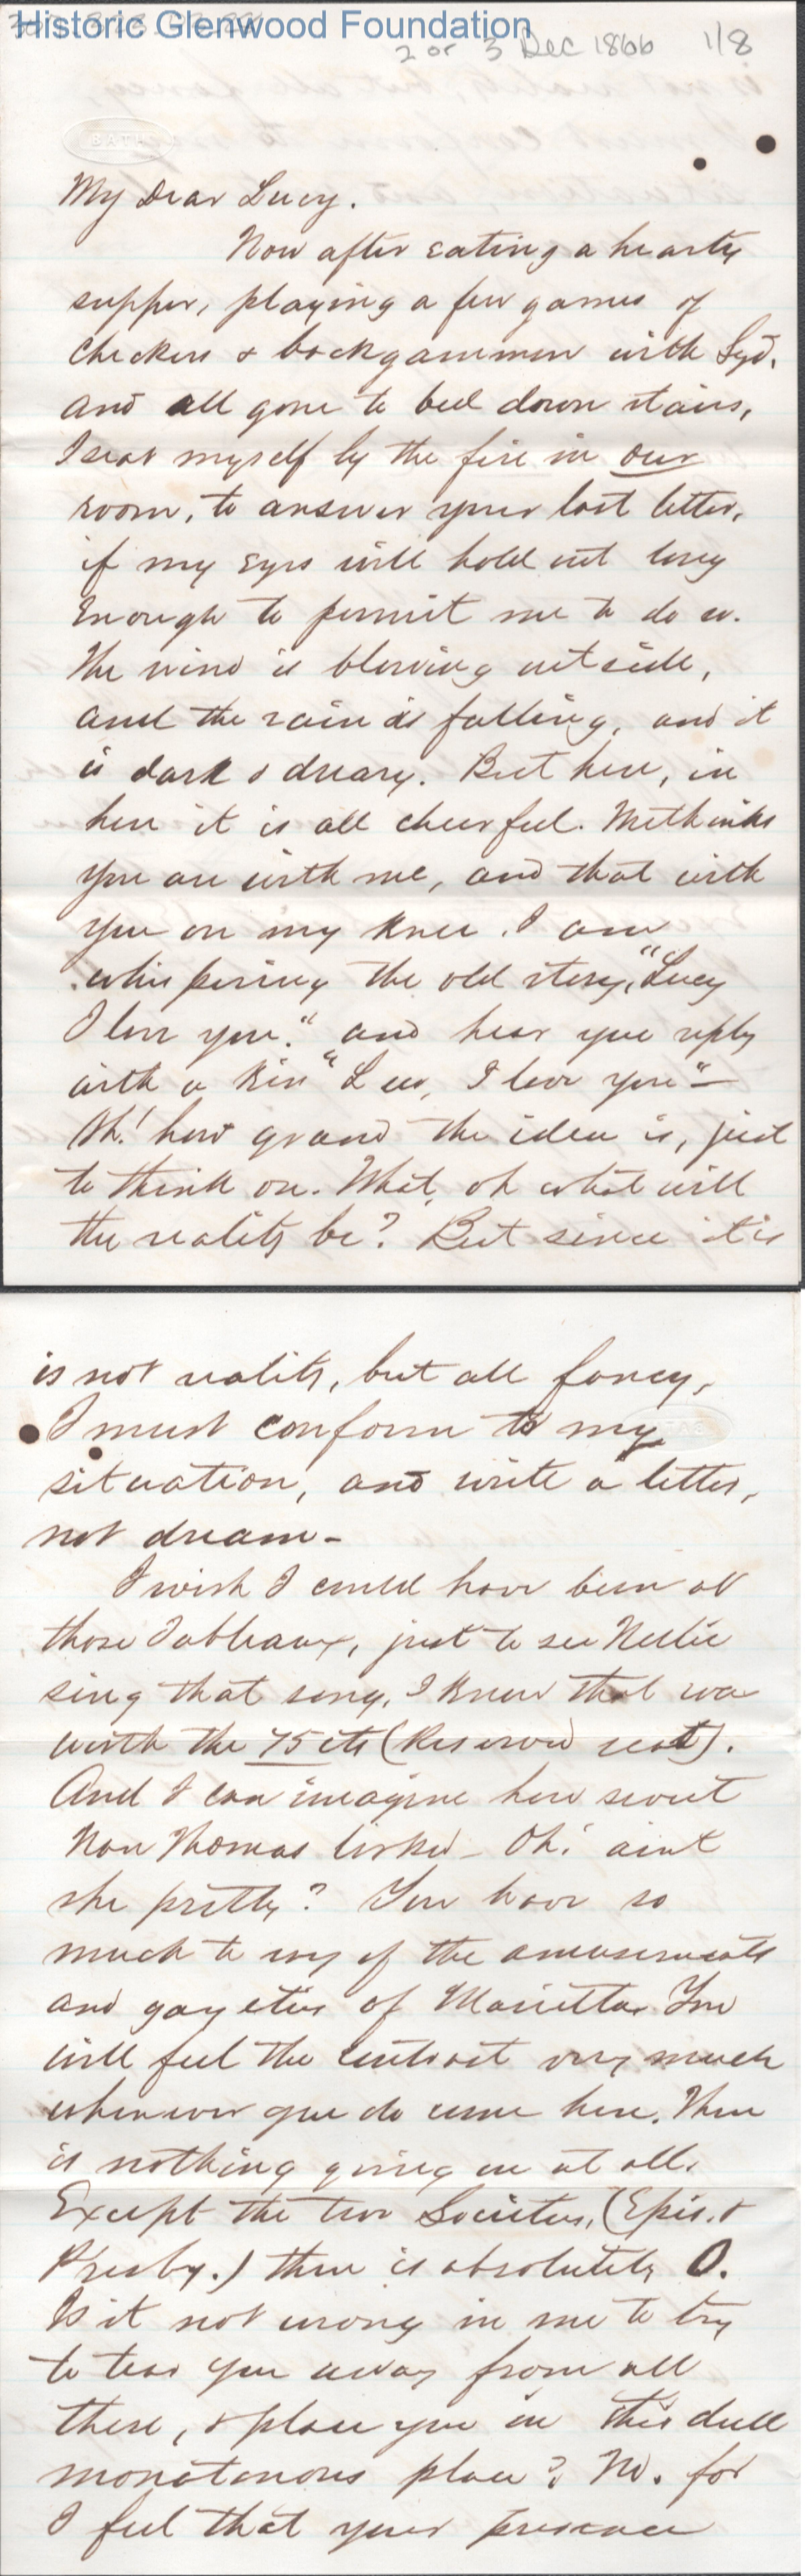 Historic Glenwood Foundation
2 or 3 Dec 1866 1/8
BATH
My Dear Lucy.
Now after eating a hearty
supper, playing a few games of
checkers & backgammon with Syd.
and all gone to bed down stairs,
I seat myself by the fire in our
room, to answer your last letter,
if my eyes will hold out long
Enough to permit me to do so.
The wind is blowing outside,
and the rain is falling, and it
is dark & dreary. But here, in
here it is all cheerful. Methinks
you are with me, and that with
you on my knee. I am
whispering the old story, "Lucy
I love you." and hear you reply
with a kiss "Lew, I love you" —
Oh! how grand the idea is, just
to think on. What, oh what will
the reality be? But since it is
is not reality, but all fancy,
I must conform to my
situation, and write a letter,
not dream -
I wish I could have been at
those Tableaux, just to see Nellie
sing that song. I know that was
worth the 75 cts (Reserved seat).
And I can imagine how sweet
Nan Thomas looked - Oh! aint
she pretty? You have so
much to say of the amusements
and gayeties of Marietta. You
will feel the contrast very much
whenever you do come here. There
is nothing going on at all.
Except the two Societies, (Epis. &
Presby.) there is absolutely 0.
Is it not wrong in me to try
to tear you away from all
these, & place you in this dull
monotonous place? No. for
I feel that your presence